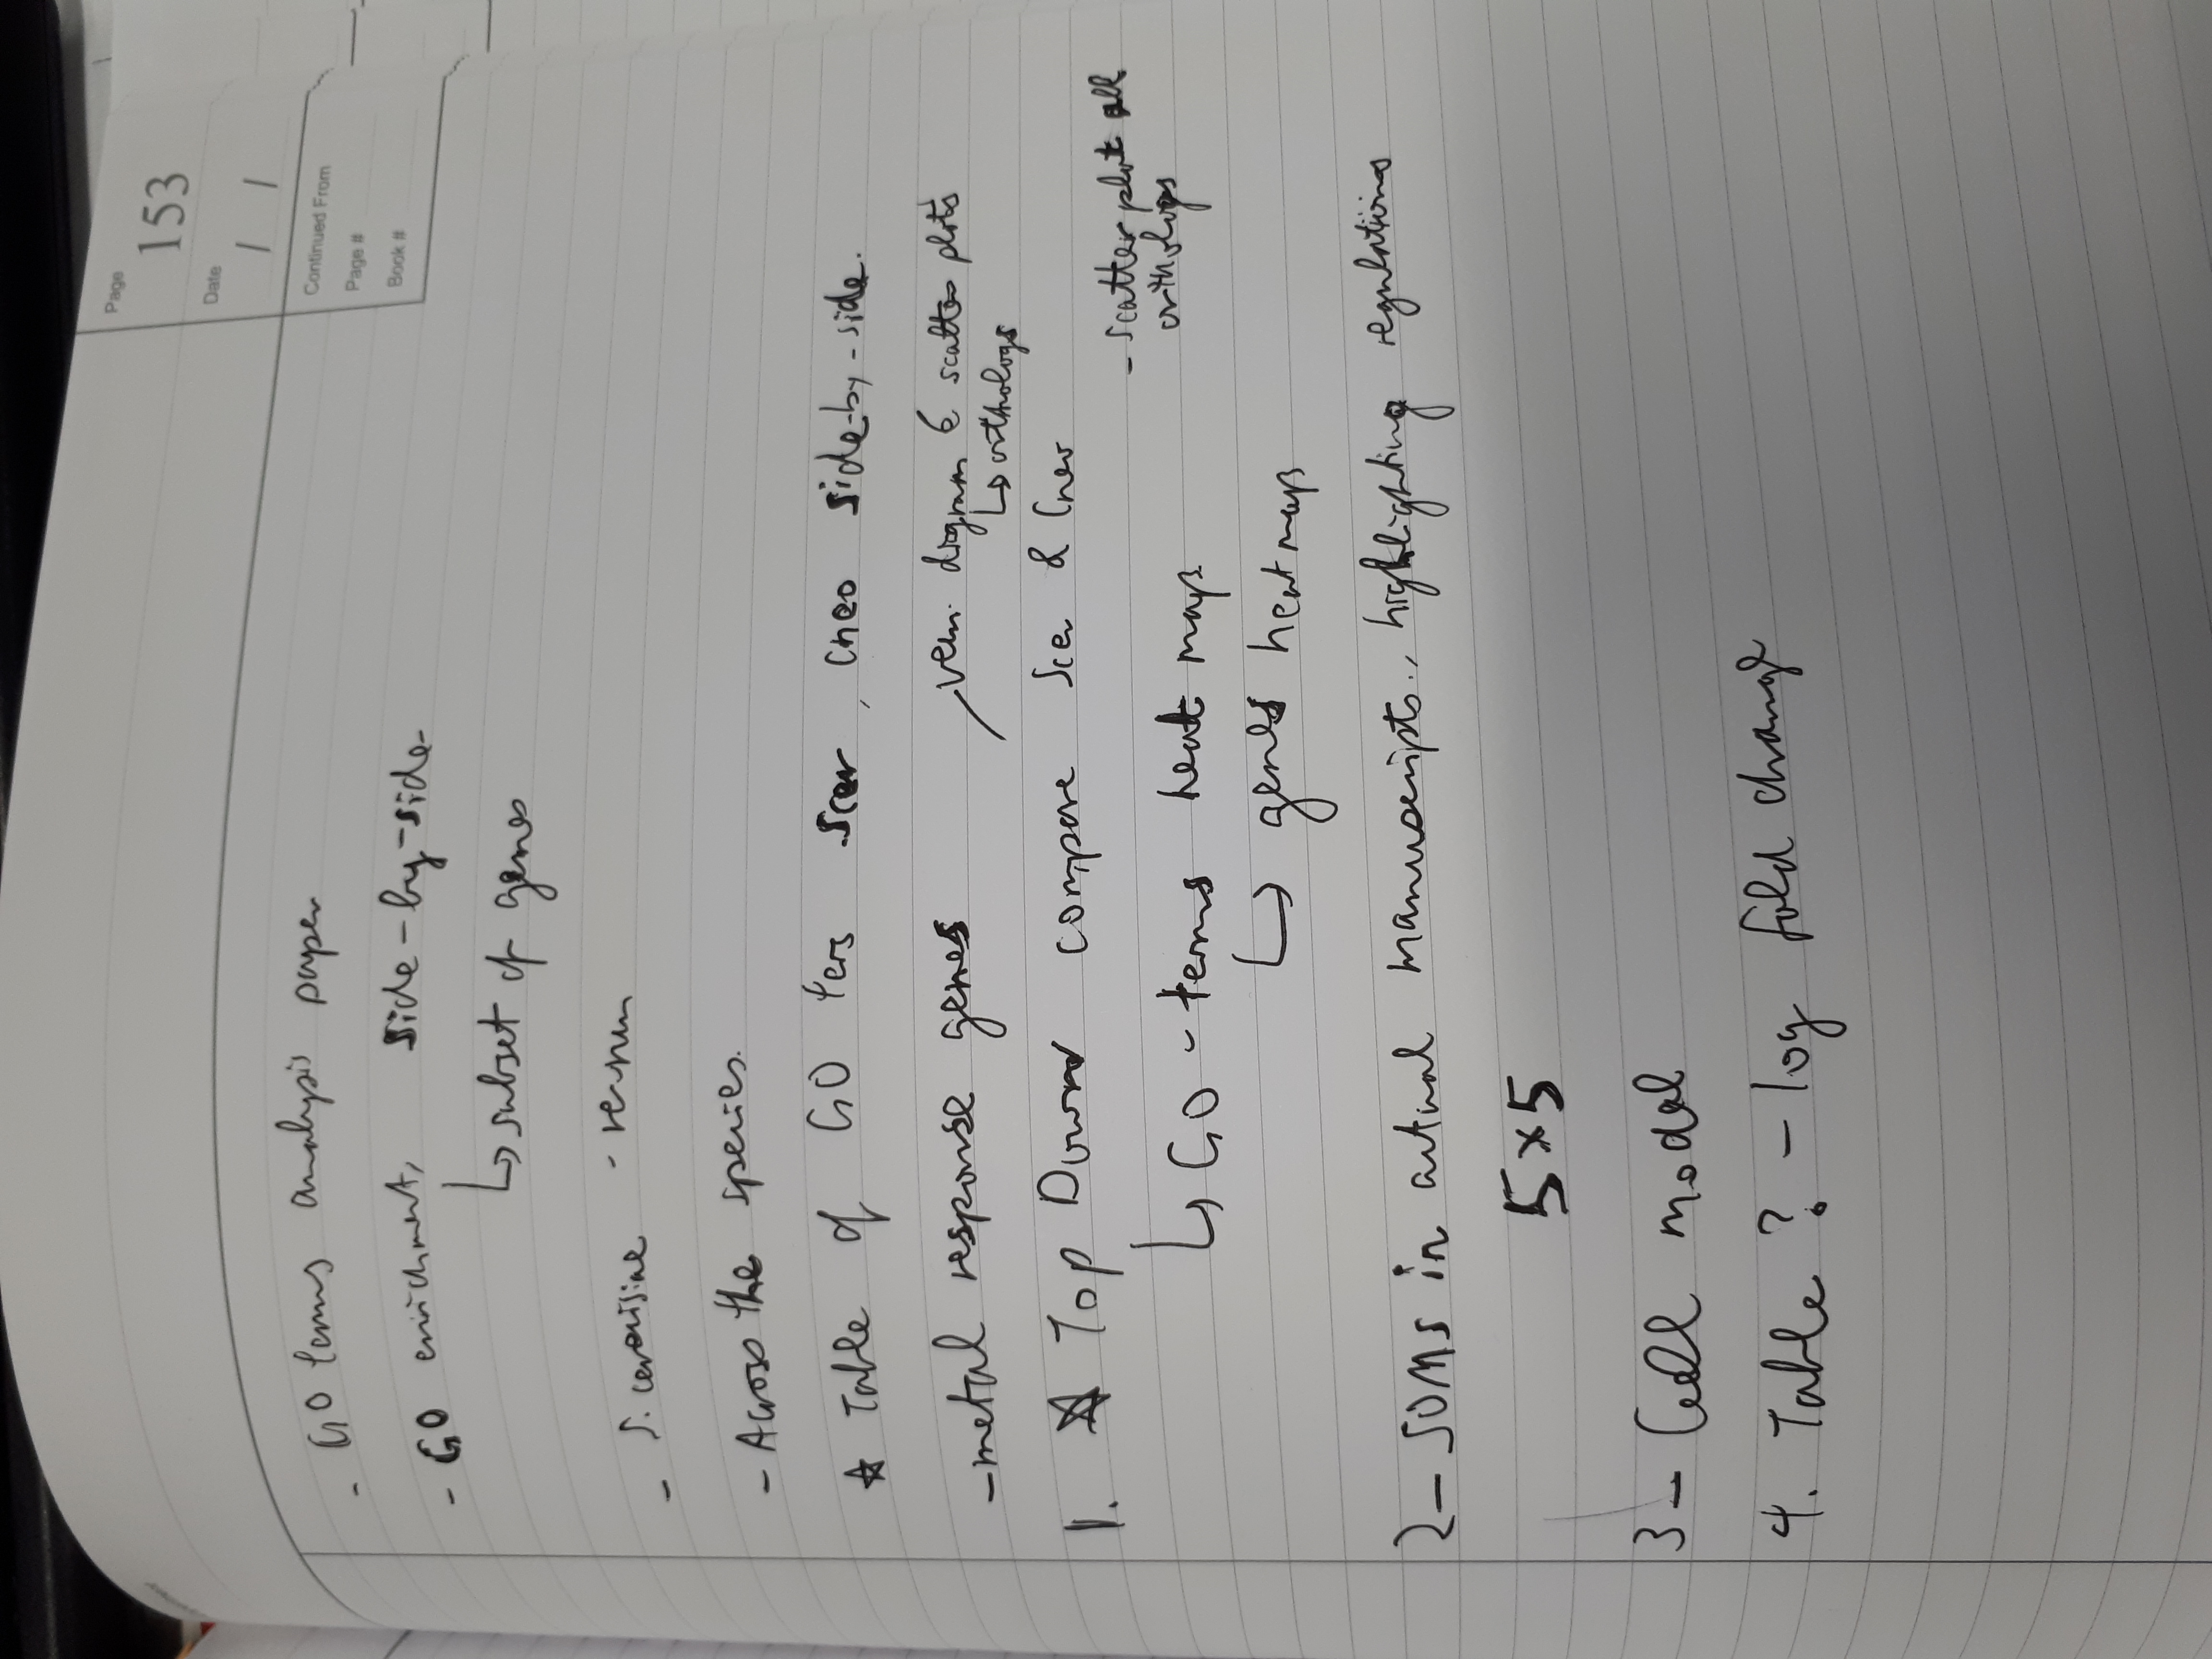 Page
153
Date
/ /
Continued From
Page #
Book #
- GO terms analysis paper
- GO enrichment, side-by-side
↳ subset of genes
- S. cerevisiae - re-run
- Across the species.
☆ Table of GO ters Scer, Cneo side-by-side.
- metal response genes
venn diagram & scatter plots
↳ orthologs
1. ☆ Top Down compare Scer & Cneo
- scatter plot all
orthologs
↳ GO-terms heat maps
↳ genes heatmaps
2- SOMs in actual manuscripts., highlighting regulations
5x5
3- Cell model
4. Table ? - log fold change